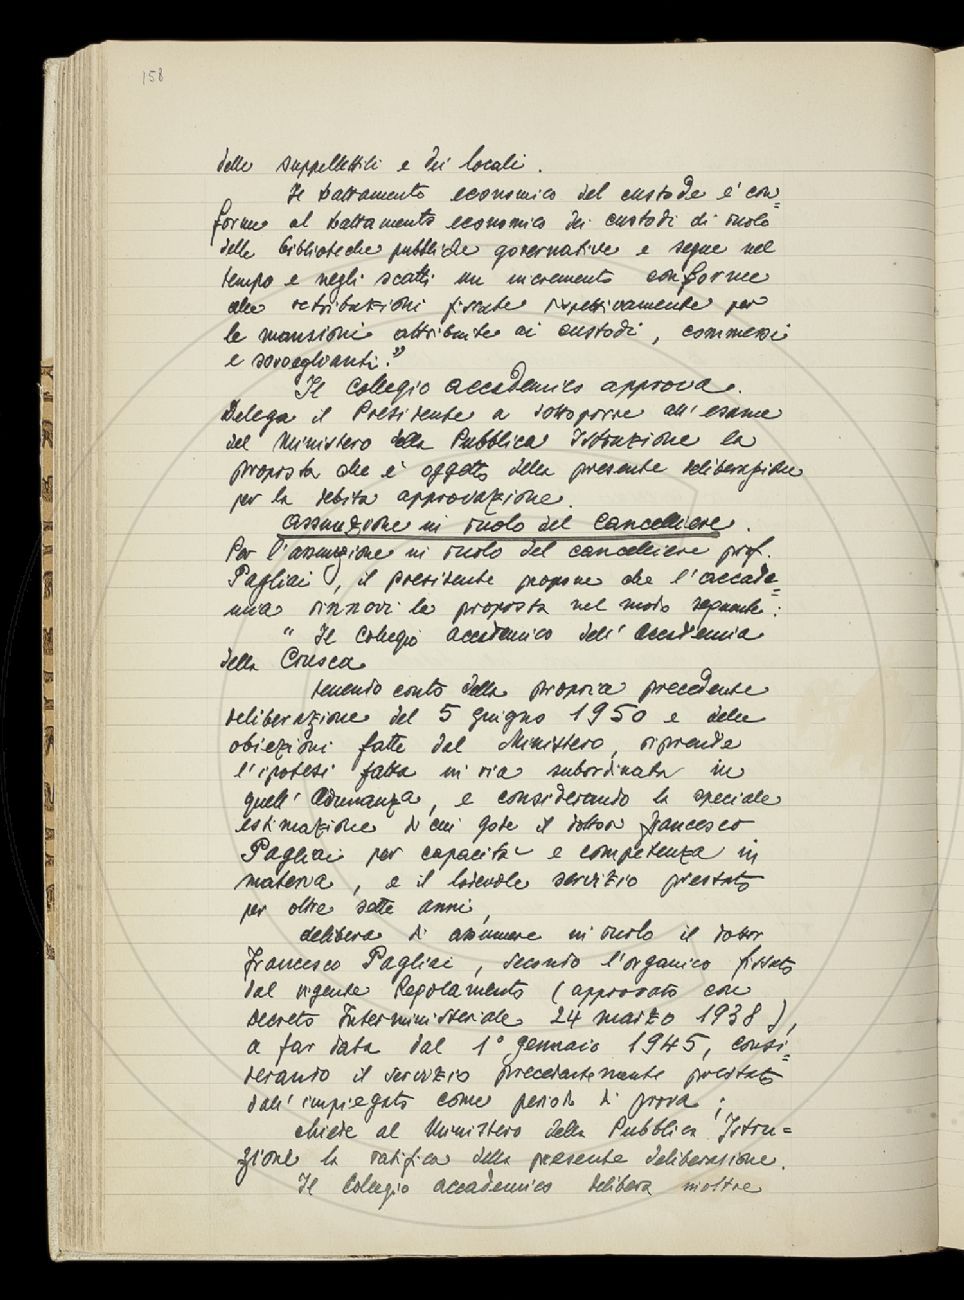 158
delle suppellettili e dei locali.
Il trattamento economico del custode è con=
forme al trattamento economico dei custodi di ruolo
delle biblioteche pubbliche governative e segue nel
tempo e negli scatti un incremento conforme
alle retribuzioni fissate rispettivamente per
le mansioni attribuite ai custodi, commessi
e sorveglianti."
Il Collegio accademico approva.
Delega il Presidente a sottoporre all'esame
del Ministero della Pubblica Istruzione la
proposta che è oggetto della presente deliberazione
per la debita approvazione.
Assunzione in ruolo del Cancelliere.
Per l'assunzione in ruolo del cancelliere prof.
Pagliai, il Presidente propone che l'accade=
mia rinnovi la proposta nel modo seguente:
"Il Collegio accademico dell'Accademia
della Crusca
tenendo conto della propria precedente
deliberazione del 5 giugno 1950 e delle
obiezioni fatte dal Ministero, riprende
l'ipotesi fatta in via subordinata in
quell'Adunanza, e considerando la speciale
estimazione di cui gode il dottor Francesco
Pagliai per capacità e competenza in
materia, e il lodevole servizio prestato
per oltre sette anni,
delibera di assumere in ruolo il dottor
Francesco Pagliai, secondo l'organico fissato
dal vigente Regolamento (approvato con
Decreto Interministeriale 24 marzo 1938),
a far data dal 1° gennaio 1945, consi=
derando il servizio precedentemente prestato
dall'impiegato come periodo di prova;
chiede al Ministero della Pubblica Istru=
zione la ratifica della presente deliberazione.
Il Collegio accademico delibera inoltre